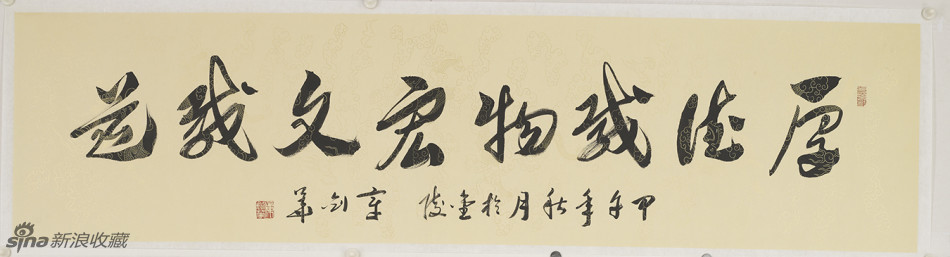 厚德载物宏文载道
甲午年秋月於金陵 章剑华
sina 新浪收藏